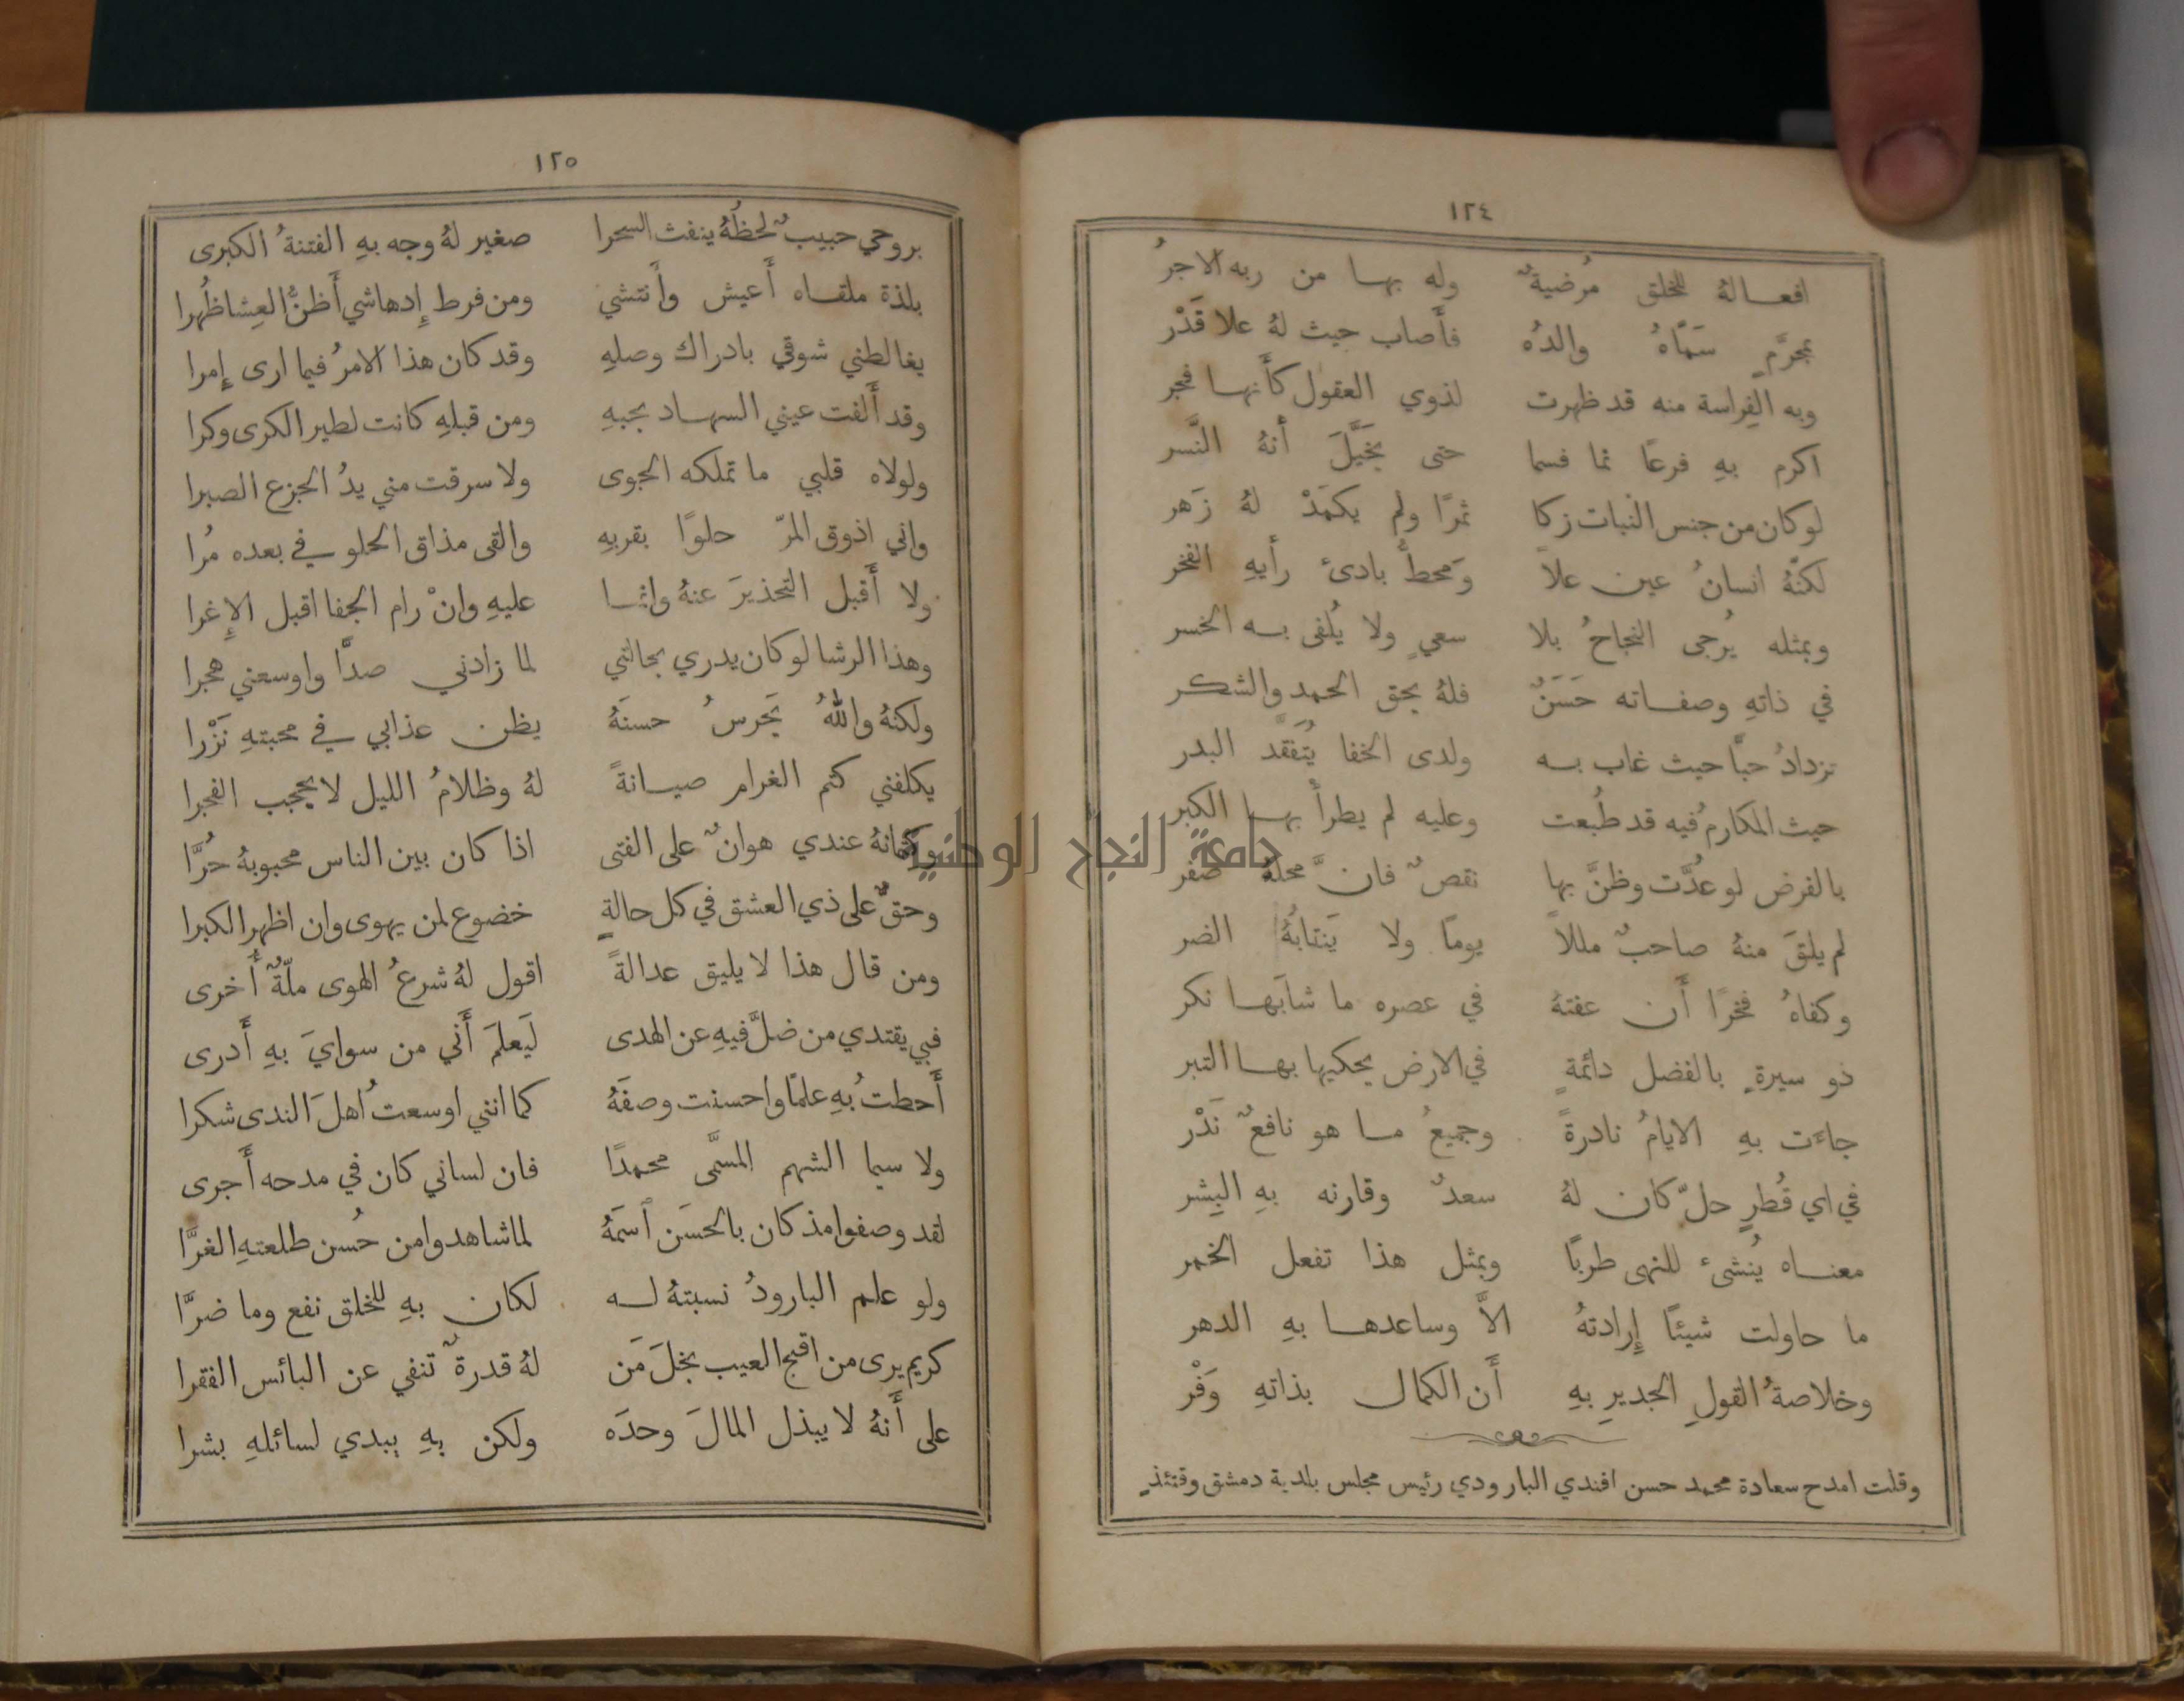 ١٢٤
افعالهُ للخلق مُرضيةٌ وله بها من ربه الاجرُ
بمحرَّمٍ سَمَّاهُ والدُه فأَصاب حيث لهُ علا قَدْر
وبه الفِراسة منه قد ظهرت لذوي العقول كأَنها فجر
اكرم بهِ فرعًا نما فسما حتى تخَيَّلَ أنهُ النَّسر
لو كان من جنس النبات زكا ثمرًا ولم يكمَدْ لهُ زَهر
لكنَّهُ انسانُ عين علاً وَمحطُّ بادئ رأيهِ الفخر
وبمثله يُرجى النجاحُ بلا سعيٍ ولا يُلفى به الخسر
في ذاتهِ وصفاته حَسَنٌ فلهُ بحق الحمد والشكر
تزدادُ حبًّا حيث غاب به ولدى الخفا يُتَفقَّد البدر
حيث المكارمُ فيه قد طُبعت وعليه لم يطرأْ بها الكبر
بالفرض لو عدَّت وظنَّ بها نقصٌ فانَّ محلهُ صفر
لم يلقَ منهُ صاحبٌ مللاً يومًا ولا يَنتابُهُ الضر
وكفاهُ فخرًا أَن عفتهُ في عصره ما شابَها نكر
ذو سيرةٍ بالفضل دائمةٍ في الارض يحكيها بها التبر
جاءَت بهِ الايامُ نادرةً وجميعُ ما هو نافعٌ نَدْر
في اي قُطرٍ حلّ كان لهُ سعدٌ وقارنه بهِ البِشر
معناه يُنشئ للنهى طربًا وبمثل هذا تفعل الخمر
ما حاولت شيئًا إِرادتهُ الاَّ وساعدها بهِ الدهر
وخلاصةُ القولِ الجديرِ بهِ أَن الكمال بذاتهِ وَفْر
وقلت امدح سعادة محمد حسن افندي البارودي رئيس مجلس بلدية دمشق وقتئذٍ
١٢٥
بروحي حبيبٌ لحظُهُ ينفث السحرا صغير لهُ وجه بهِ الفتنةُ الكبرى
بلذة ملقاه أَعيش وأَنتشي ومن فرط إِدهاشي أَظنُّ العِشا ظُهرا
يغالطني شوقي بادراك وصلهِ وقد كان هذا الامرُ فيما ارى إِمرا
وقد أَلفت عيني السهاد بحبهِ ومن قبلهِ كانت لطير الكرى وكرا
ولولاه قلبي ما تملكه الجوى ولا سرقت مني يدُ الجزع الصبرا
واني اذوق المرّ حلوًا بقربهِ والقى مذاق الحلو في بعده مُرا
ولا أَقبل التحذيرَ عنهُ وانما عليهِ وانْ رام الجفا اقبل الإِغرا
وهذا الرشا لو كان يدري بحالتي لما زادني صدًّا واوسعني هجرا
ولكنهُ واللهُ يَحرسُ حسنَهُ يظن عذابي في محبتهِ نَزْرا
يكلفني كتم الغرام صيانةً لهُ وظلامُ الليل لا يحجب الفجرا
وكتمانهُ عندي هوانٌ على الفتى اذا كان بين الناس محبوبهُ حُرَّا
وحقٌّ على ذي العشق في كل حالةٍ خضوع لمن يهوى وان اظهر الكبرا
ومن قال هذا لا يليق عدالةً اقول لهُ شرعُ الهوى ملّةٌ أُخرى
فبي يقتدي من ضلَّ فيهِ عن الهدى لَيَعلمَ أَني من سوايَ بهِ أَدرى
أَحطتُ بهِ علمًا واحسنت وصفَهُ كما انني اوسعتُ اهلَ الندى شكرا
ولا سيما الشهم المسمَّى محمدًا فان لساني كان في مدحه أَجرى
لقد وصفوا مذ كان بالحسَن ٱسمَهُ لما شاهدوا من حُسن طلعتهِ الغرَّا
ولو علم البارودُ نسبتهُ له لكان بهِ للخلق نفع وما ضرَّا
كريم يرى من اقبح العيب بخلَ مَن لهُ قدرةٌ تنفي عن البائس الفقرا
على أَنهُ لا يبذل المالَ وحدَه ولكن بهِ يبدي لسائلهِ بشرا
جامعة النجاح الوطنية